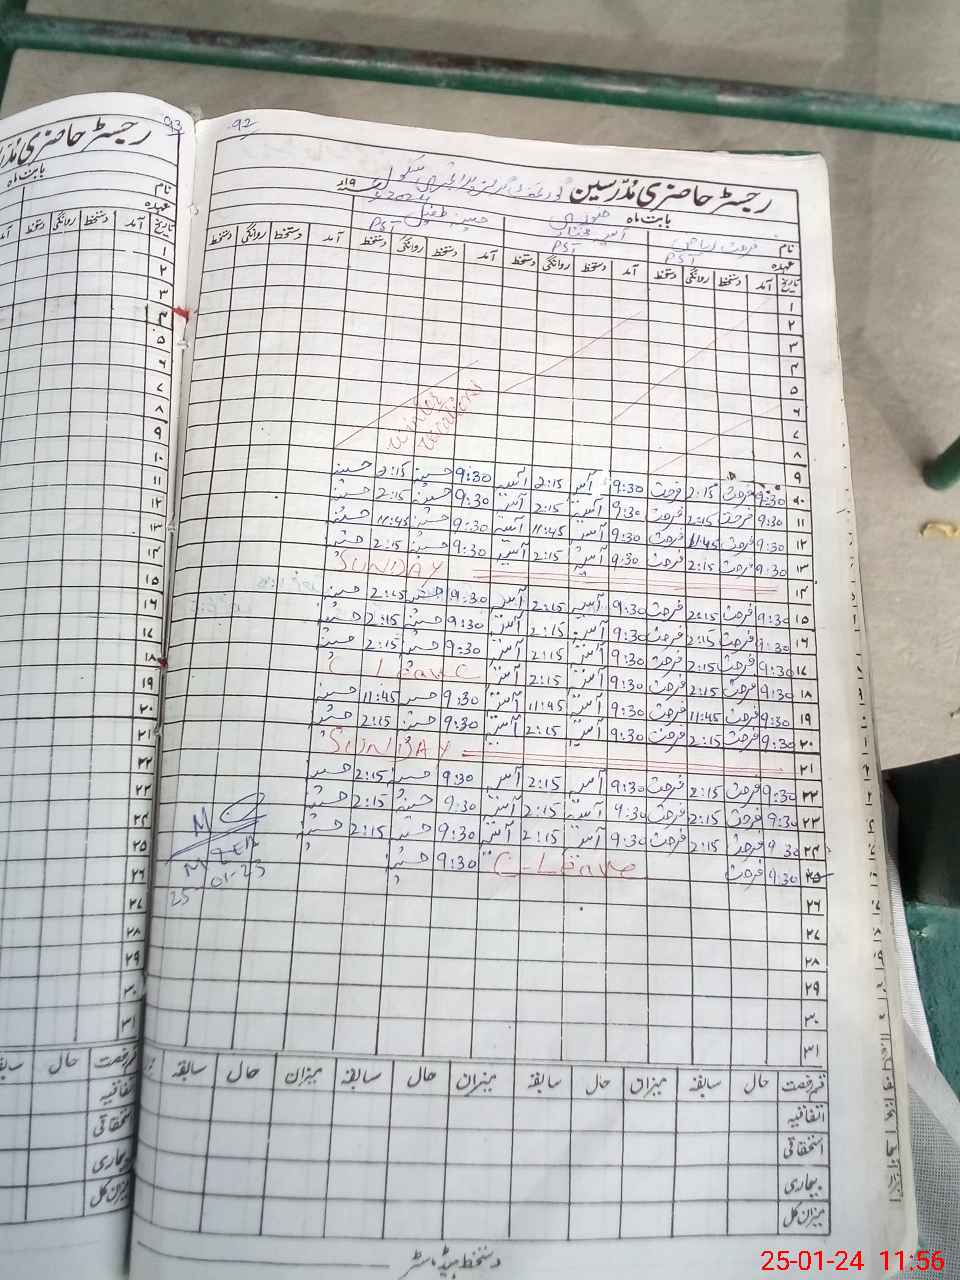 92
رجسٹر حاضری مدرسین
بابت ماہ جنوری 2024
نام فرحت آسیہ
عہدہ PST PST PST
تاریخ آمد دستخط روانگی دستخط آمد دستخط روانگی دستخط آمد دستخط روانگی دستخط آمد دستخط روانگی دستخط
۱
۲
۳
۴
۵
۶
۷
۸
winter vacations
۹
۱۰ 9:30 فرحت 2:15 فرحت 9:30 آسیہ 2:15 آسیہ 9:30 حسینہ 2:15 حسینہ
۱۱ 9:30 فرحت 2:15 فرحت 9:30 آسیہ 2:15 آسیہ 9:30 حسینہ 2:15 حسینہ
۱۲ 9:30 فرحت 11:45 فرحت 9:30 آسیہ 11:45 آسیہ 9:30 حسینہ 11:45 حسینہ
۱۳ 9:30 فرحت 2:15 فرحت 9:30 آسیہ 2:15 آسیہ 9:30 حسینہ 2:15 حسینہ
۱۴ SUNDAY
۱۵ 9:30 فرحت 2:15 فرحت 9:30 آسیہ 2:15 آسیہ 9:30 حسینہ 2:15 حسینہ
۱۶ 9:30 فرحت 2:15 فرحت 9:30 آسیہ 2:15 آسیہ 9:30 حسینہ 2:15 حسینہ
۱۷ 9:30 فرحت 2:15 فرحت 9:30 آسیہ 2:15 آسیہ 9:30 حسینہ 2:15 حسینہ
۱۸ 9:30 فرحت 2:15 فرحت 9:30 آسیہ 2:15 آسیہ C Leave
۱۹ 9:30 فرحت 11:45 فرحت 9:30 آسیہ 11:45 آسیہ 9:30 حسینہ 11:45 حسینہ
۲۰ 9:30 فرحت 2:15 فرحت 9:30 آسیہ 2:15 آسیہ 9:30 حسینہ 2:15 حسینہ
۲۱ SUNDAY
۲۲ 9:30 فرحت 2:15 فرحت 9:30 آسیہ 2:15 آسیہ 9:30 حسینہ 2:15 حسینہ
۲۳ 9:30 فرحت 2:15 فرحت 9:30 آسیہ 2:15 آسیہ 9:30 حسینہ 2:15 حسینہ
۲۴ 9:30 فرحت 2:15 فرحت 9:30 آسیہ 2:15 آسیہ 9:30 حسینہ 2:15 حسینہ
۲۵ 9:30 فرحت C-Leave 9:30 حسینہ
۲۶
۲۷
۲۸
۲۹
۳۰
۳۱
قسم رخصت حال سابقہ میزان حال سابقہ میزان حال سابقہ میزان حال سابقہ
اتفاقیہ
استحقاقی
بیماری
میزان کل
دستخط ہیڈ ماسٹر
93
رجسٹر حاضری
بابت ماہ
نام
عہدہ
تاریخ آمد دستخط روانگی دستخط
۱
۲
۳
۴
۵
۶
۷
۸
۹
۱۰
۱۱
۱۲
۱۳
۱۴
۱۵
۱۶
۱۷
۱۸
۱۹
۲۰
۲۱
۲۲
۲۳
۲۴
۲۵
۲۶
۲۷
۲۸
۲۹
۳۰
۳۱
قسم رخصت حال
اتفاقیہ
استحقاقی
بیماری
میزان کل
25-01-24 11:56